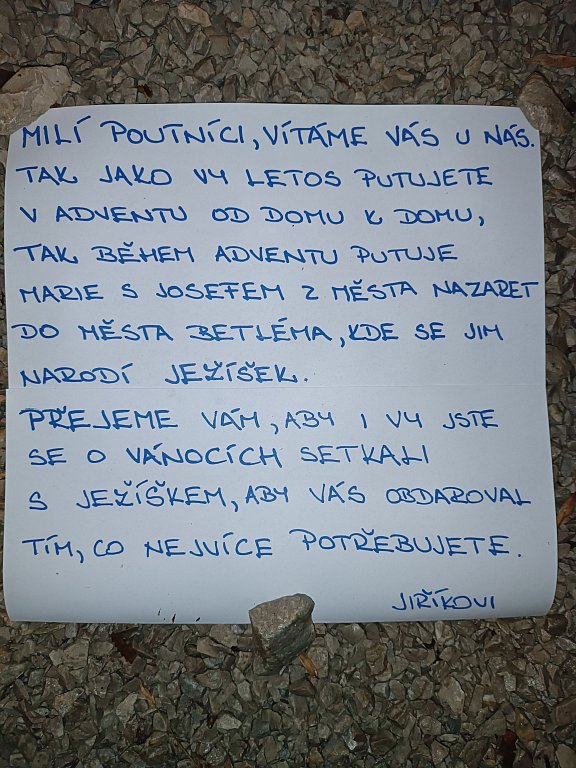 MILÍ POUTNÍCI, VÍTÁME VÁS U NÁS.
TAK JAKO VY LETOS PUTUJETE
V ADVENTU OD DOMU K DOMU,
TAK BĚHEM ADVENTU PUTUJE
MARIE S JOSEFEM Z MĚSTA NAZARET
DO MĚSTA BETLÉMA, KDE SE JIM
NARODÍ JEŽÍŠEK.
PŘEJEME VÁM, ABY I VY JSTE
SE O VÁNOCÍCH SETKALI
S JEŽÍŠKEM, ABY VÁS OBDAROVAL
TÍM, CO NEJVÍCE POTŘEBUJETE.
JIŘÍKOVI